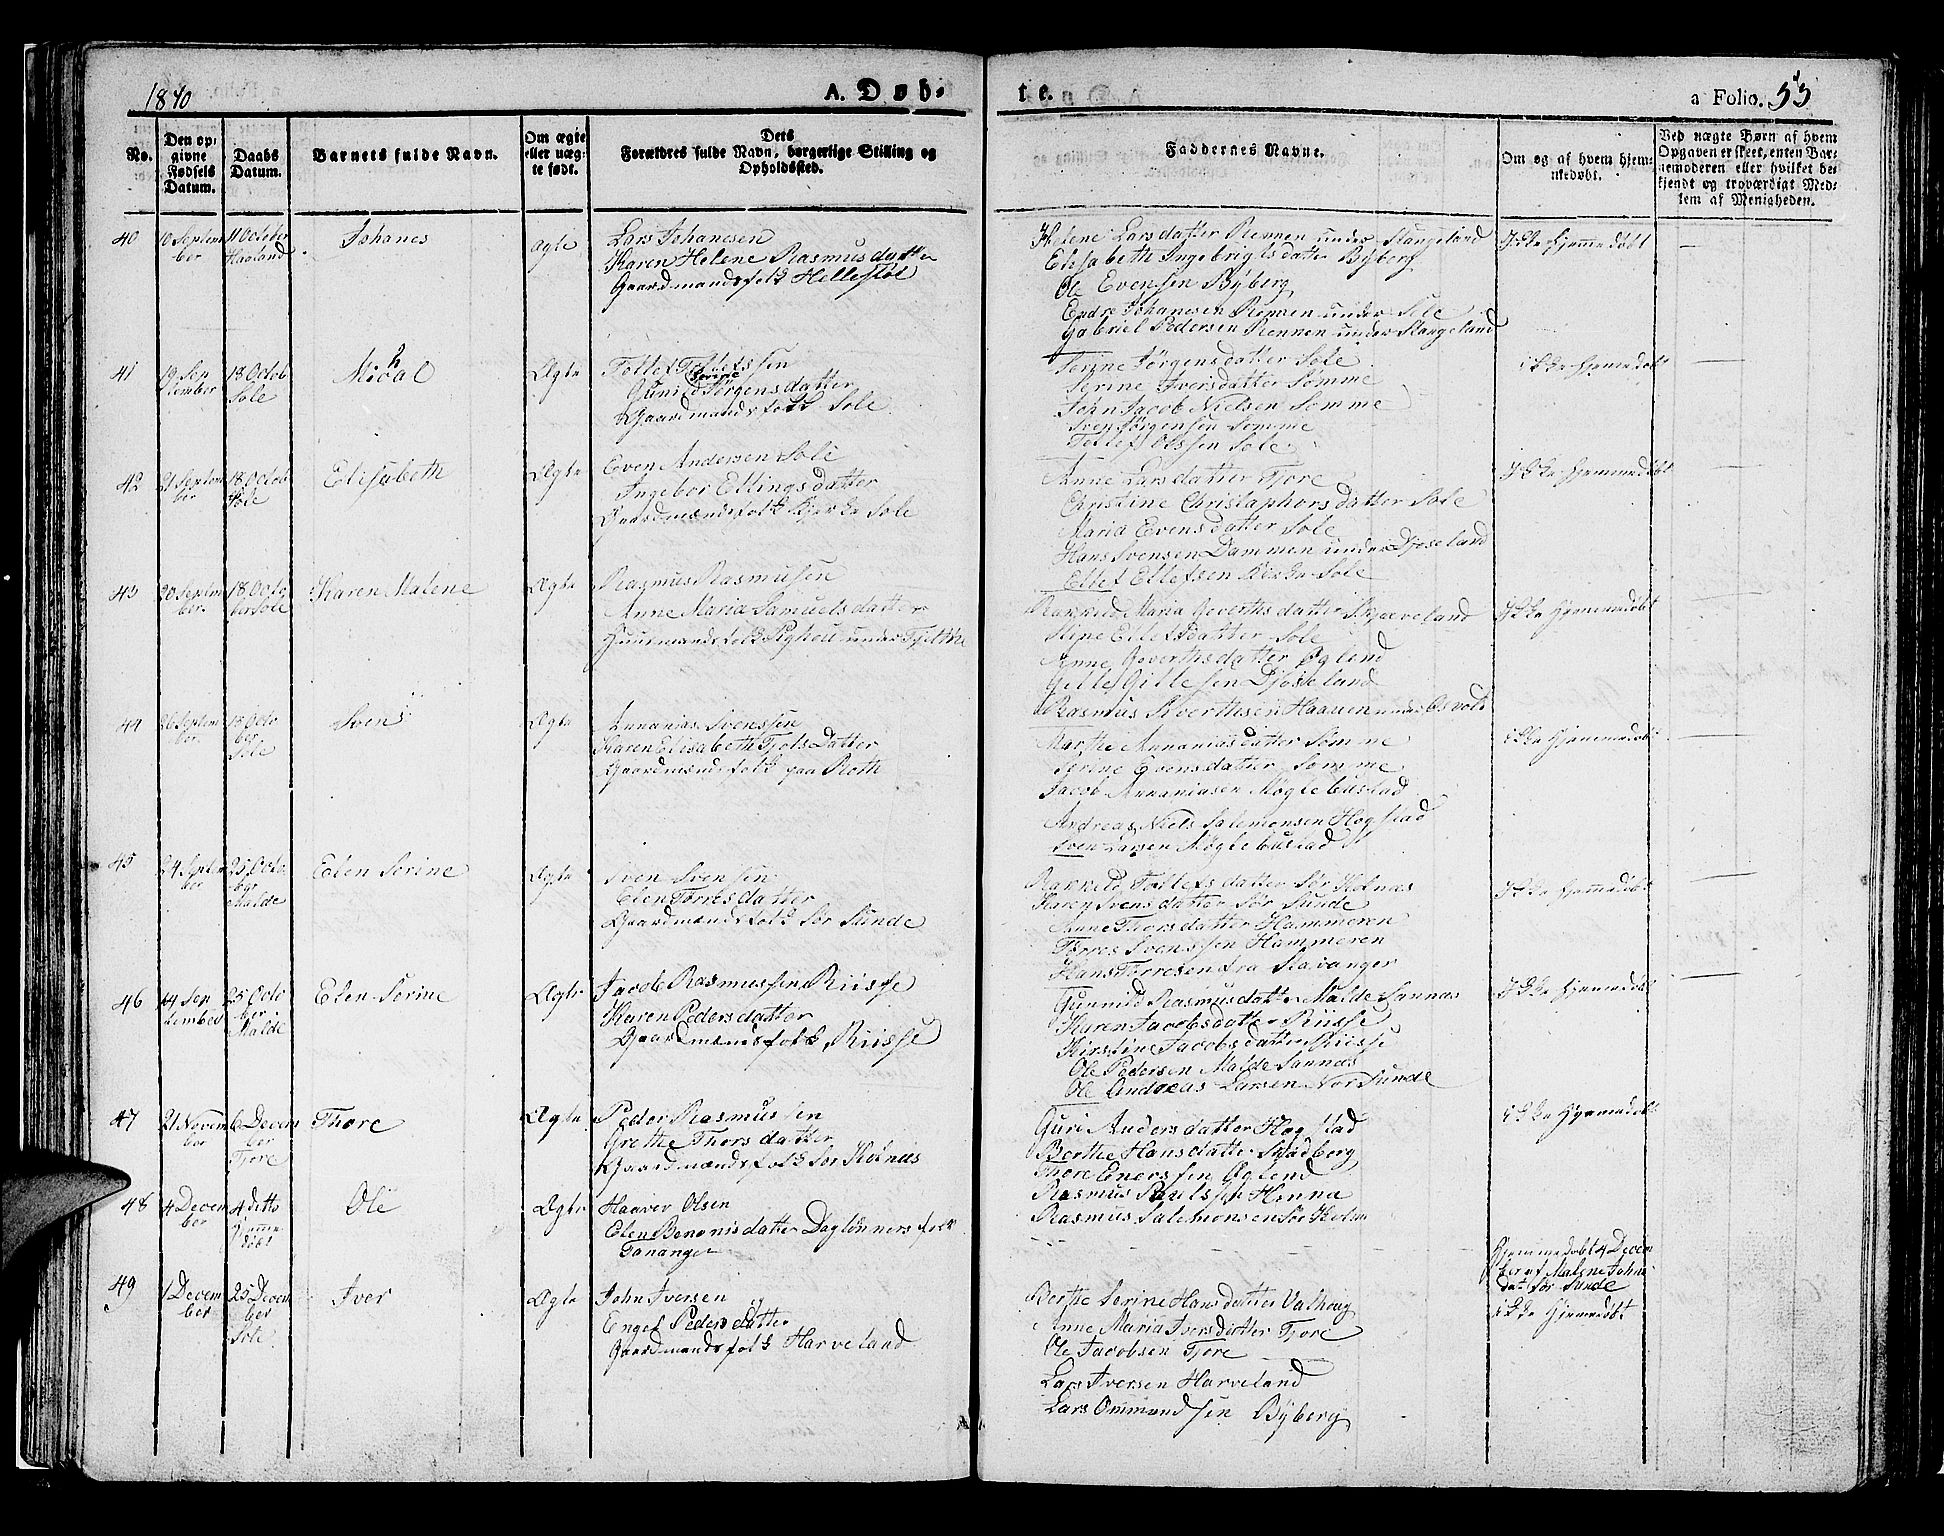 1840
A. Døb-
te.
a Folio. 55
No.
Den op-
givne
Fødsels
Datum.
Daabs
Datum.
Barnets fulde Navn.
Om ægte
eller uæg-
te født.
Dets
Forældres fulde Navn, borgerlige Stilling og
Opholdssted.
Faddernes Navne.
Om og af hvem hjem-
mkedøbt.
Ved uægte Børn af hvem
Opgaven er skeet, enten Bar-
nemoderen eller hvilket be-
kjendt og troværdigt Med-
lem af Menigheden.
40
10 Septem
ber
11 October
Haaland
Johanes
Ægte
Lars Johanesen
Karen Helene Rasmusdatter
Gaardmandsfolk Hellestøl
Helene Larsdatter Rennen under Stangeland
Elisabeth Ingebrigtsdatter Byberg
Ole Evensen Byberg
Endre Johanesen Rennen under Sole
Gabriel Pedersen Rennen under Stangeland
Ikke Hjemmedøbt
41
19 Sep
tember
18 Octob
Sole
Michal
Ægte
Tollef Tollefssen
Gunild Serine Jørgensdatter
Gaardmandsfolk Sole
Serine Jørgensdatter Sole
Serine Iversdatter Sømme
John Jacob Nielsen Sømme
Sven Jørgensen Sømme
Tollef Olssen Sole
ikke Hjemmedøbt
42
21 Septem
ber
18 Octob
Sole
Elisabeth
Ægte
Even Andersen Sole
Ingebor Ellingsdatter
Gaardmændsfolk Kirke Sole
Anne Larsdatter Tjore
Christine Christophorsdatter Sole
Maria Evensdatter Sole
Hans Svensen Dammen under Djøseland
Ellef Ellefsen Kirke Sole
Ikke Hjemmedøbt
43
20 Septem
ber
18 Octo
ber Sole
Karen Malene
Ægte
Rasmus Rasmusen
Anne Maria Samuelsdatter
Huusmandsfolk under
Maria Goverthsdatter Skjæveland
Stine Ellefsdatter Sole
Anne Goverthsdatter Øglend
Gitle Gitlesen Djøseland
Rasmus Haauen under Osvold
Ikke Hjemmedøbt
44
26 Septem
ber
18 Octo
ber
Sole
Sven
Ægte
Ananias Svenssen
Karen Elisabeth Datter
Gaardmændsfolk paa Roth
Marthe Ananiasdatter Sømme
Serine Evensdatter Sømme
Jacob Ananiasen Møglebustad
Andreas Niels Salemonsen Hogstad
Sven Larsen Møglebustad
ikke Hjemmedøbt
45
24 Septem
ber
25 Octo
ber
Malde
Elen Serine
Ægte
Sven Svensen
Elen Torresdatter
Gaardmændsfolk Sør Sunde
Rannild Tollefsdatter Sør Kolnæs
Karen Svensdatter Sør Sunde
Anne Thorsdatter Hammeren
Torres Svenssen Hammeren
Hans Torresen fra Stavanger
Ikke Hjemmedøbt
46
14 Sep
tember
25 Octo
ber
Malde
Elen Serine
Ægte
Jacob Rasmussen Riisse
Karen Pedersdatter
Gaardmændsfolk Riisse
Gunnild Rasmusdatter Malde Sannæs
Karen Jacobsdatter Riisse
Kirstine Jacobsdatter Riisse
Ole Pedersen Malde Sannæs
Ole Andreas Larsen Nor Sunde
Ikke Hjemmedøbt
47
21 Novem
ber
6 Decem
ber
Tjore
Thore
Ægte
Peder Rasmussen
Grethe Thorsdatter
Gaardmændsfolk Sør Kolnæs
Guri Andersdatter Hogstad
Berthe Hansdatter Skjødberg
Thore Enerssen Øglend
Rasmus Paulssen Hinna
Rasmus Salemonsen Sør Kolnæs
ikke Hjemmedøbt
48
4 Decem
ber
4 ditto
hjemme
døbt
Ole
Ægte
Haaver Olsen
Elen Benonisdatter Daglønnersfolk
Tananger
Hjemmedøbt 4 Decem
ber af Malene Johns
dat. Sør Sunde
49
1 Decem
ber
25 Decem
ber
Sole
Iver
Ægte
John Iversen
Engel Pedersdatter
Gaardmandsfolk Harveland
Berthe Serine Hansdatter Valhoug
Anne Maria Iversdatter Tjore
Ole Jacobsen Tjore
Lars Iversen Harveland
Lars Ommundsen Byberg
ikke Hjemmedøbt